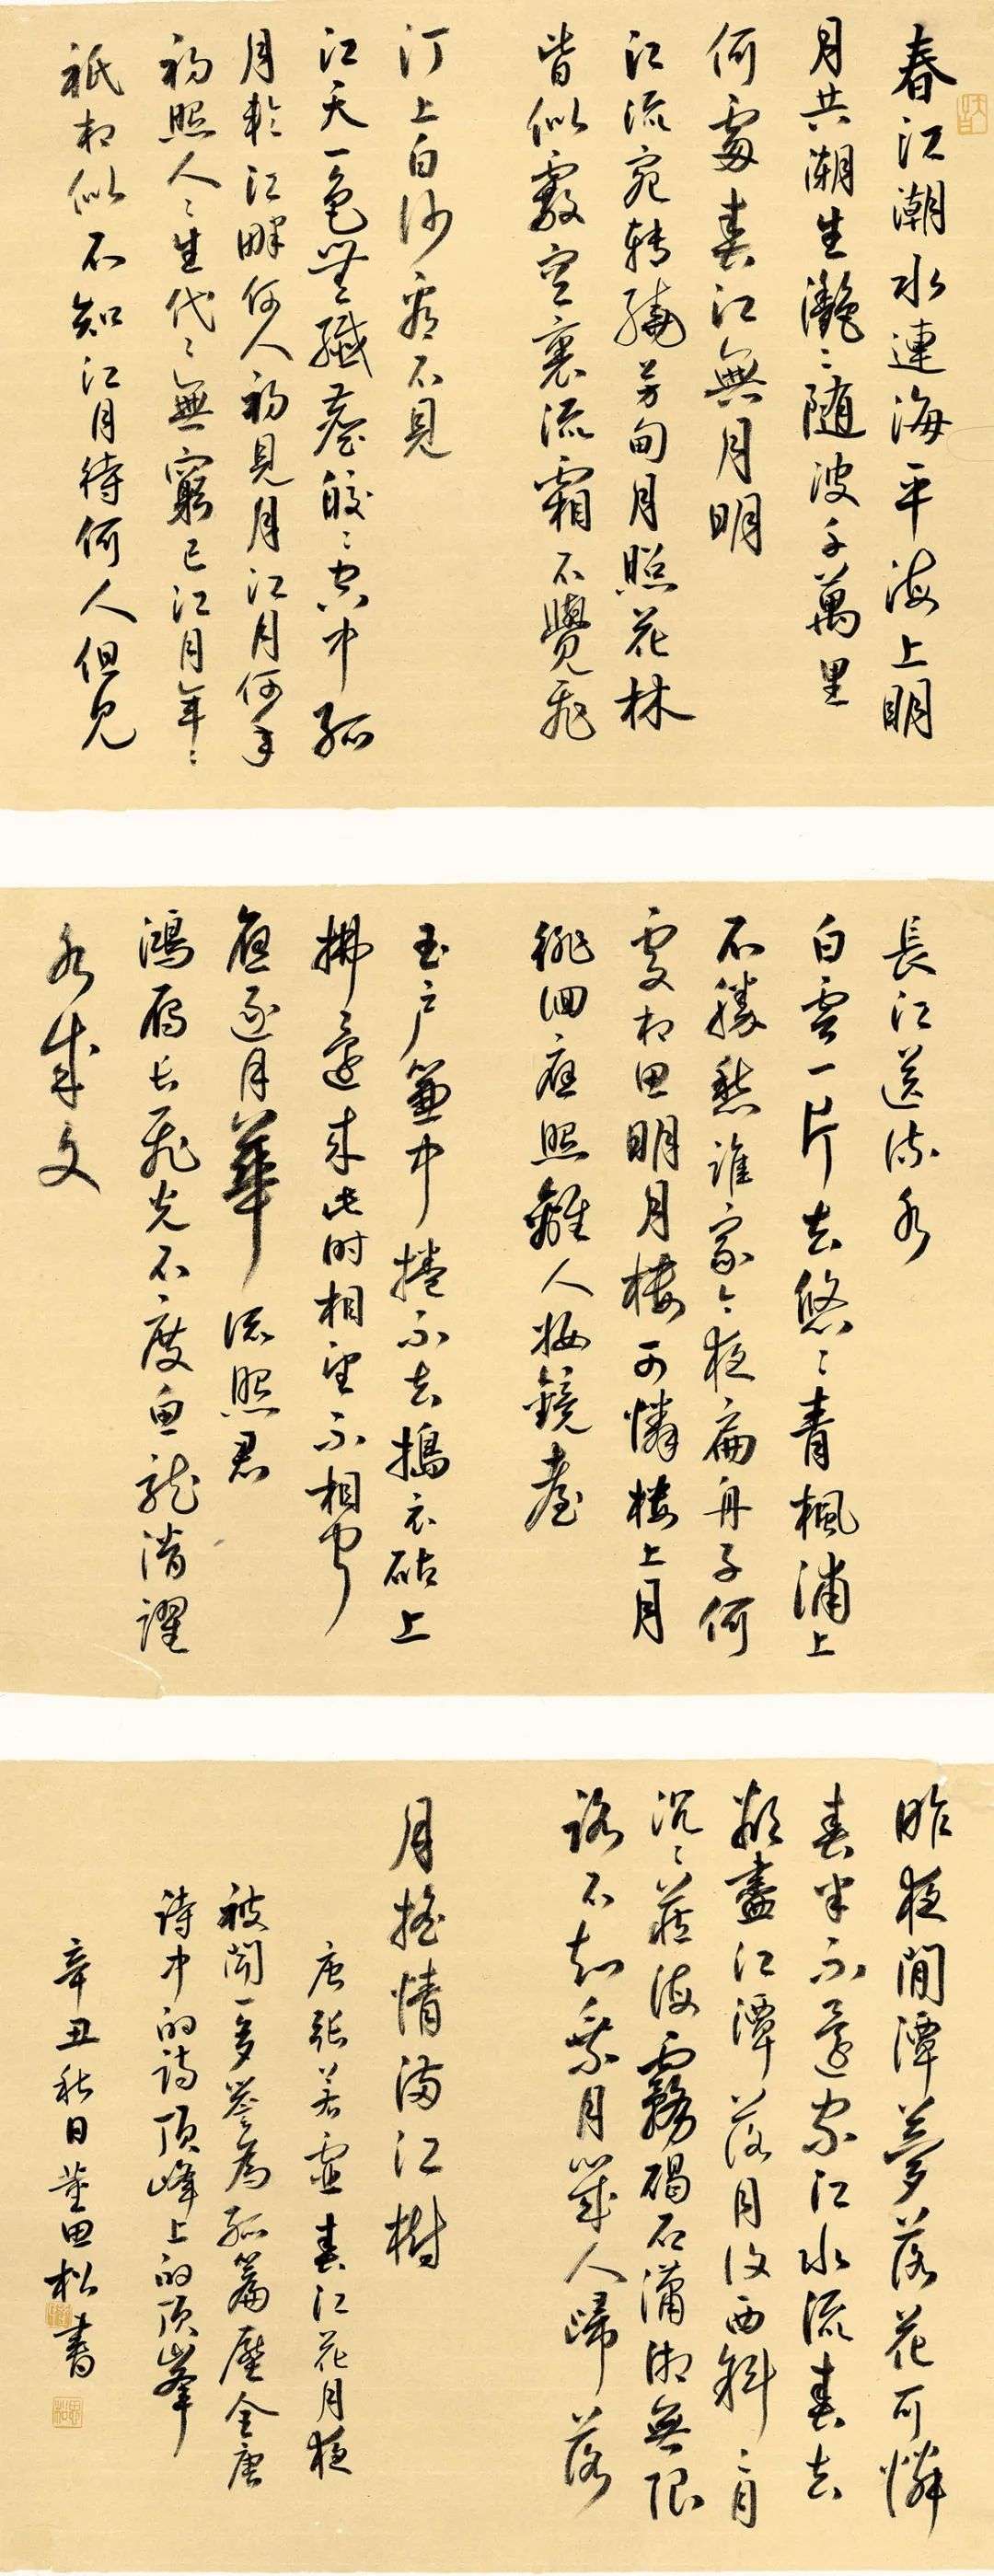 春江潮水連海平海上明
月共潮生灧〻随波千萬里
何處春江無月明
江流宛轉繞芳甸月照花林
皆似霰空裏流霜不覺飛
汀上白沙看不見
江天一色無纖塵皎〻空中孤
月輪江畔何人初見月江月何年
初照人〻生代〻無窮已江月年〻
祇相似不知江月待何人但見
長江送流水
白雲一片去悠〻青楓浦上
不勝愁誰家今夜扁舟子何
處相思明月樓可憐樓上月
徘徊應照離人妝鏡臺
玉户簾中捲不去搗衣砧上
拂還来此时相望不相聞
願逐月華流照君
鴻雁长飛光不度魚龍潛躍
水成文
昨夜閒潭夢落花可憐
春半不還家江水流春去
欲盡江潭落月復西斜〻月
沉〻藏海霧碣石瀟湘無限
路不知乘月幾人歸落
月搖情滿江樹
唐張若虛春江花月夜
被聞一多譽為孤篇壓全唐
詩中的詩頂峰上的頂峯
辛丑秋日董思松書